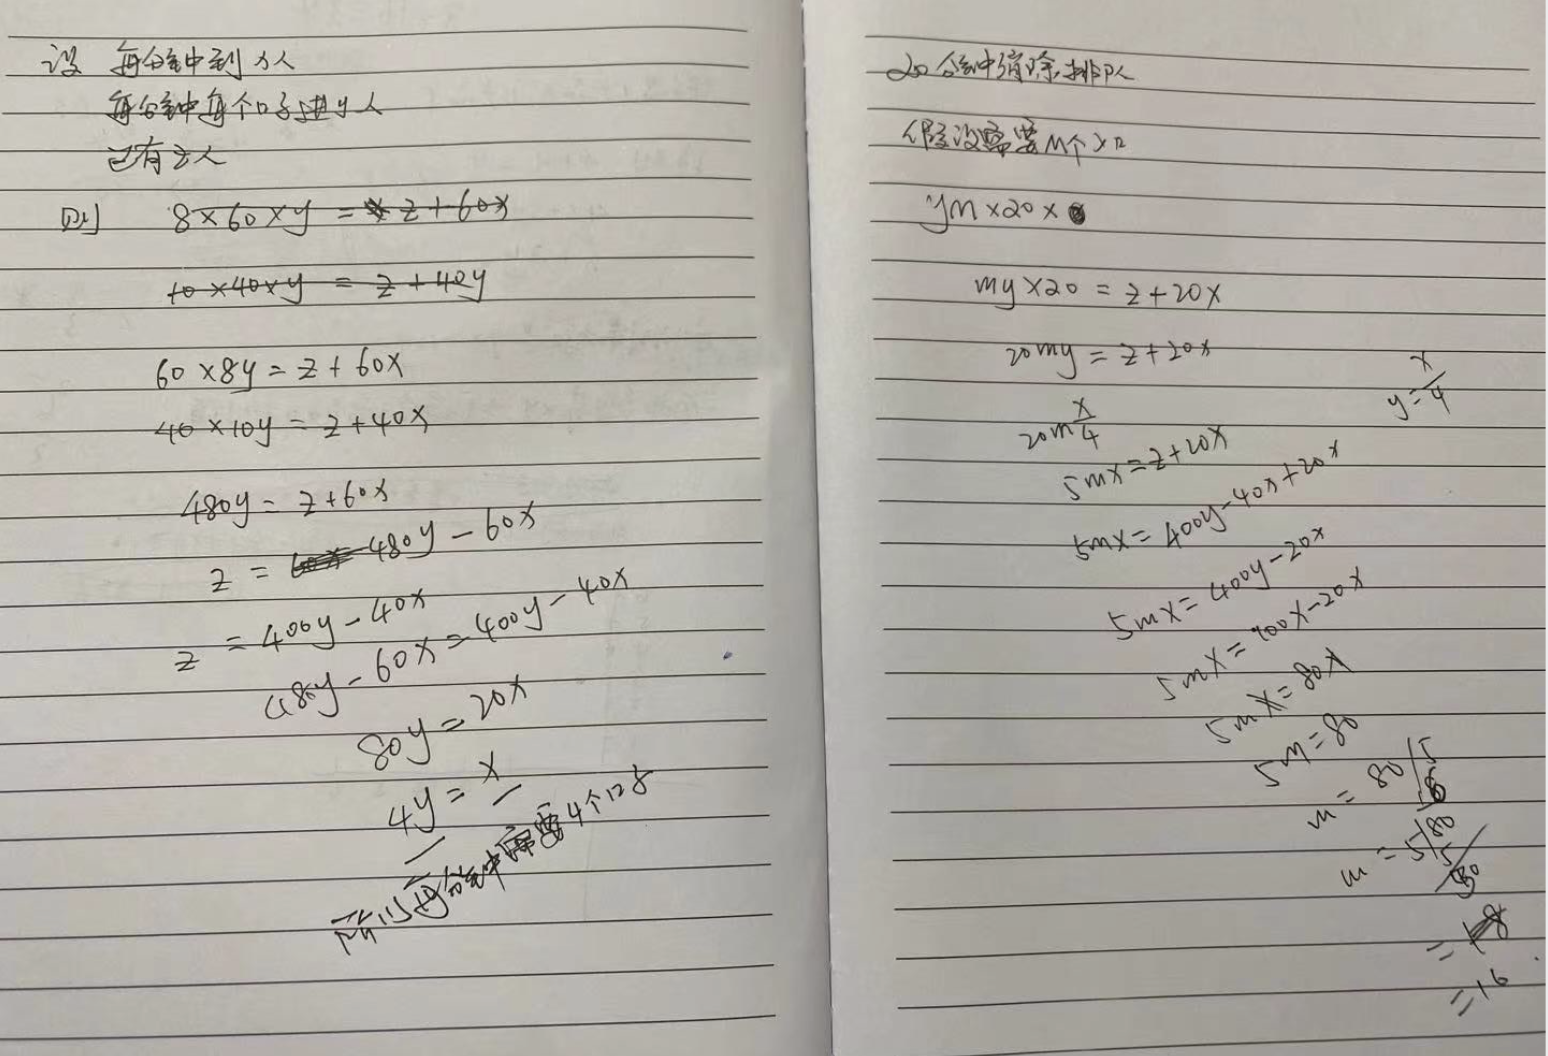 设 每分钟到x人
每分钟每个口子进y人
已有z人
则 8×60×y = z+60x
10×40×y = z+40y
60×8y=z+60x
40×10y=z+40x
480y=z+60x
z = 480y-60x
z = 400y-40x
480y-60x=400y-40x
80y=20x
4y=x
所以每分钟需要4个口子
20分钟消除排队
假设需要M个入口
ym×20×
my×20=z+20x
20my=z+20x
y=x/4
20m x/4
5mx=z+20x
5mx=400y-40x+20x
5mx=400y-20x
5mx=100x-20x
5mx=80x
5m=80
m=80/5
m=
=16